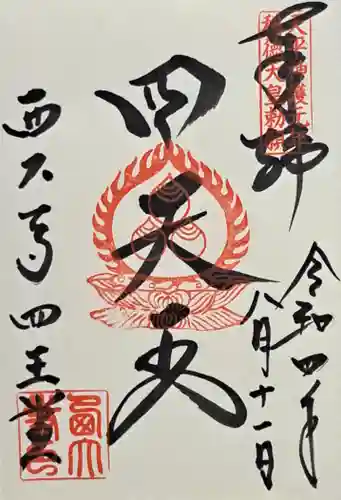 奉拝
令和四年
八月十一日
四天王
西大寺四王堂